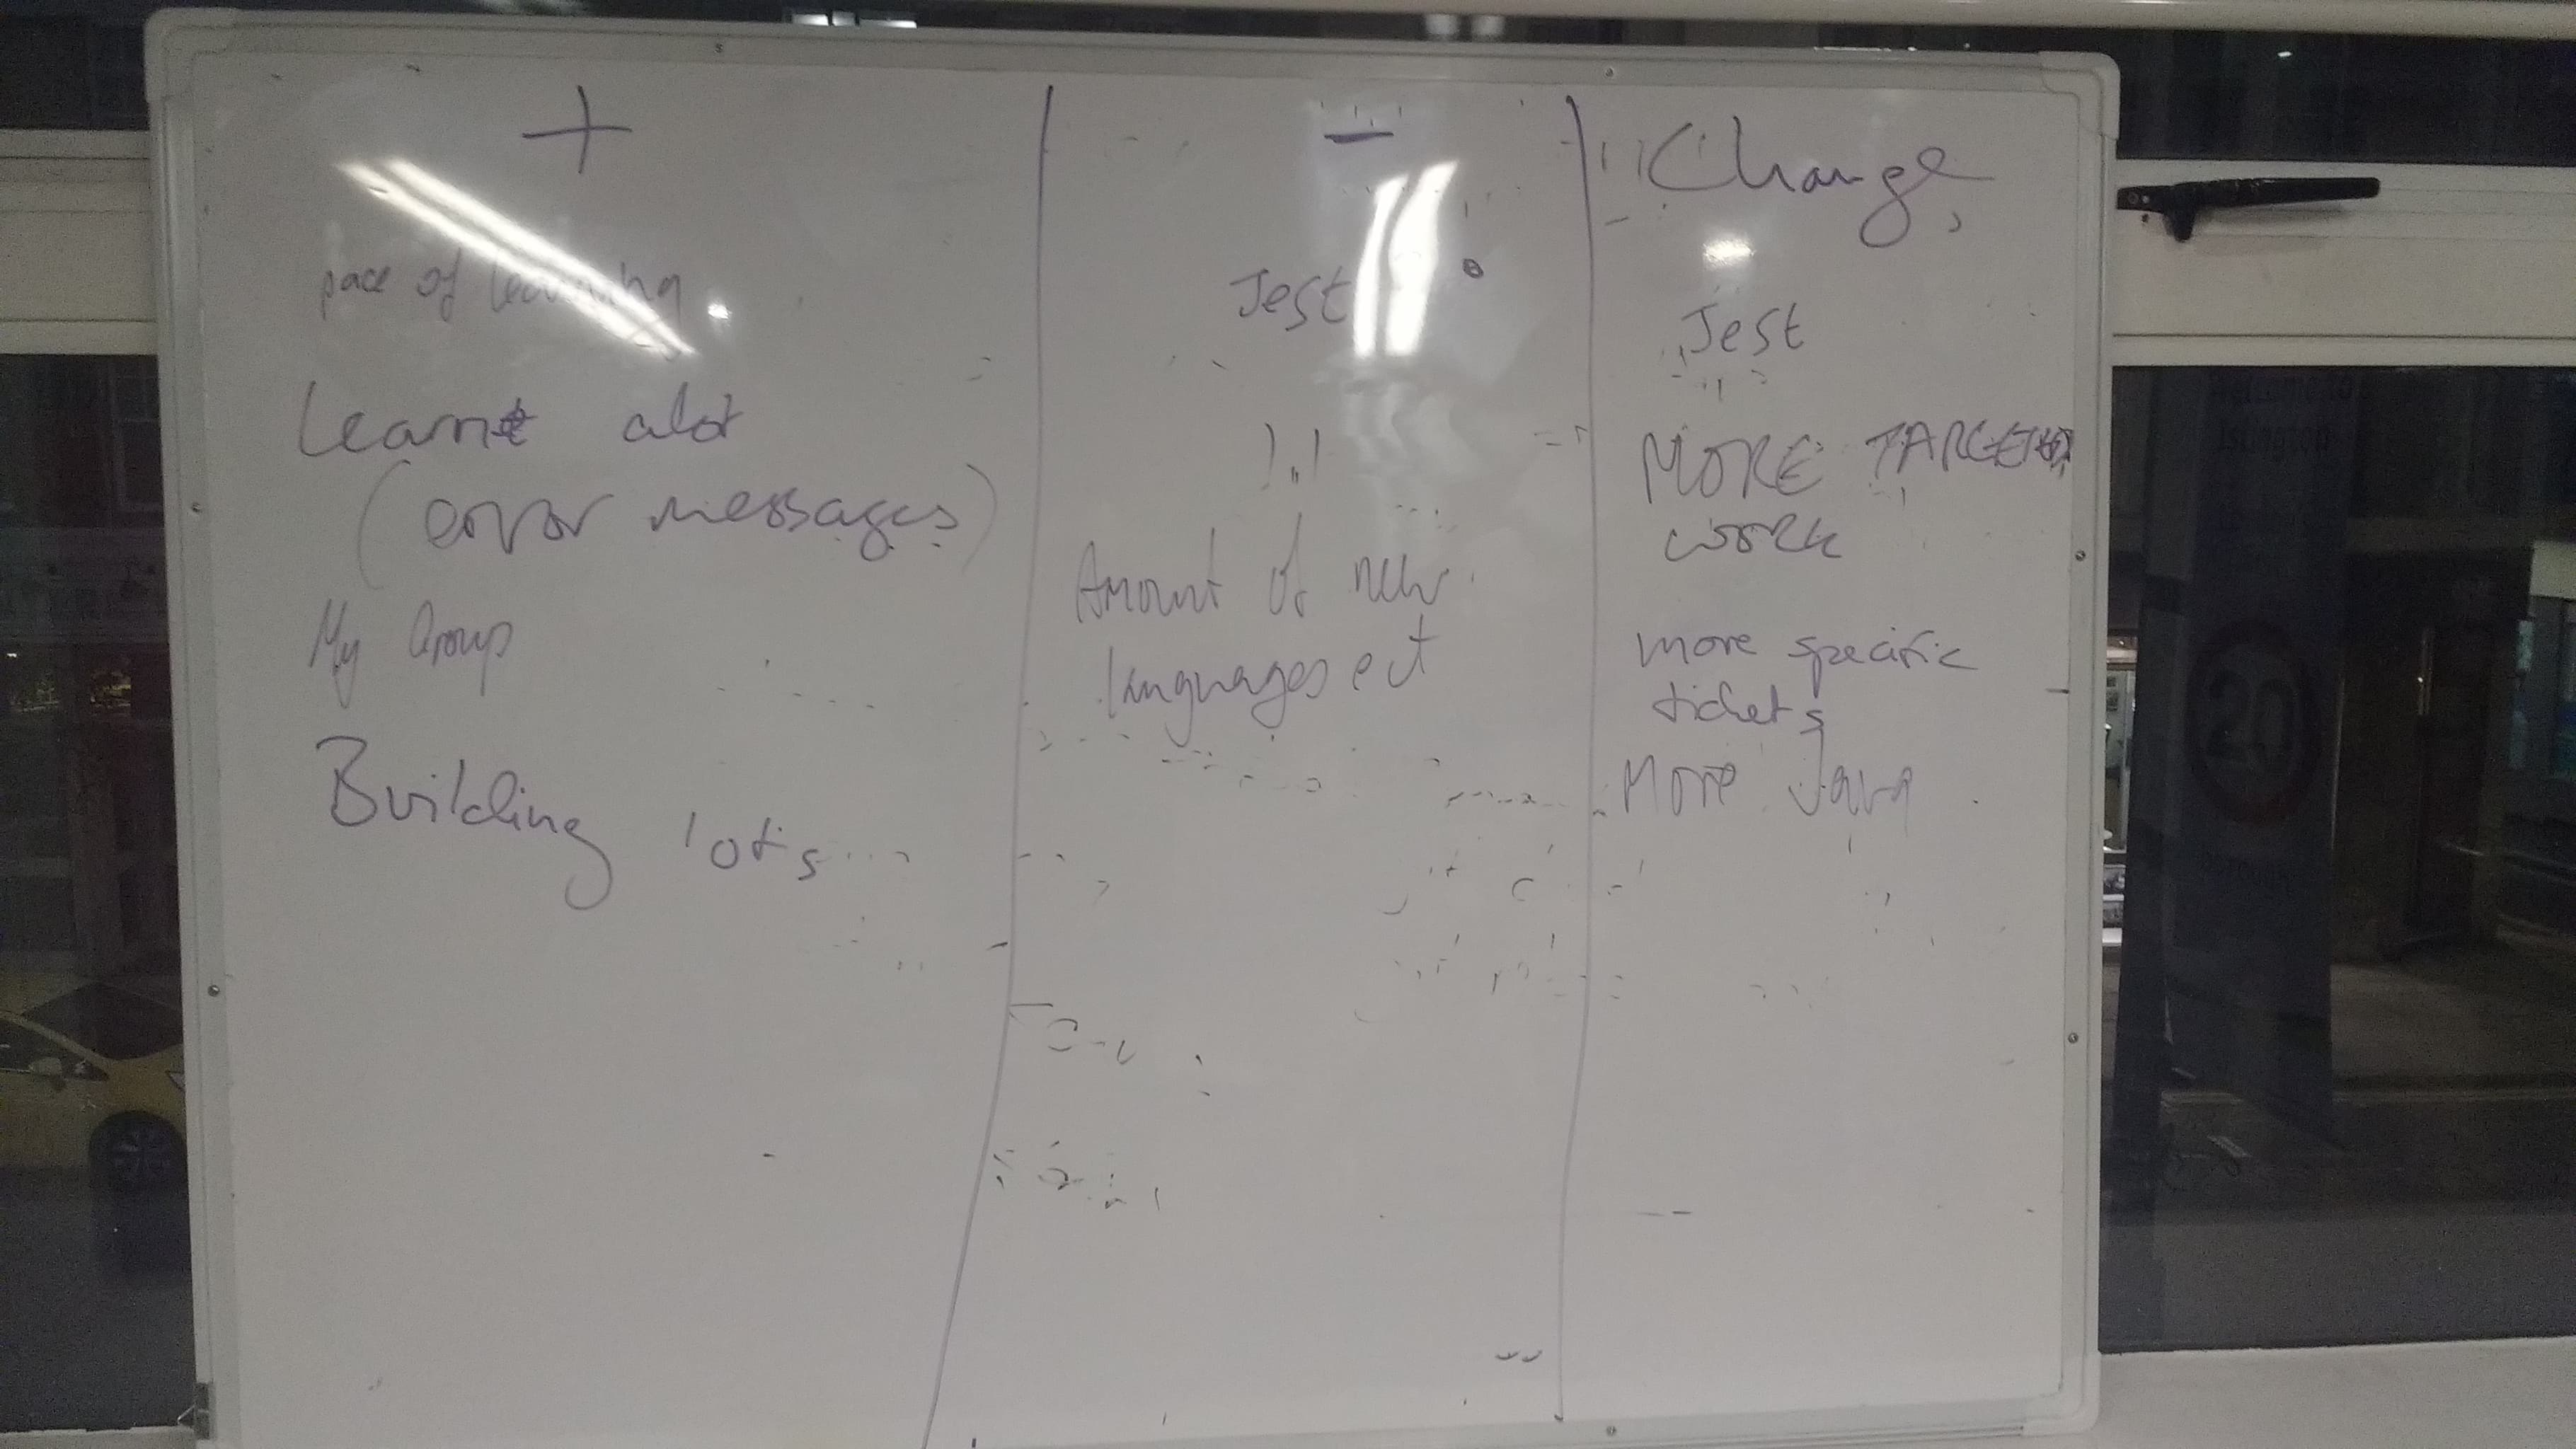 +
pace of learning
Learnt alot
(error messages)
My Group
Building lots
-
Jest
Amount of new
languages ect
Change
Jest
MORE TARGETED
WORK
more specific
tickets
More Java
20